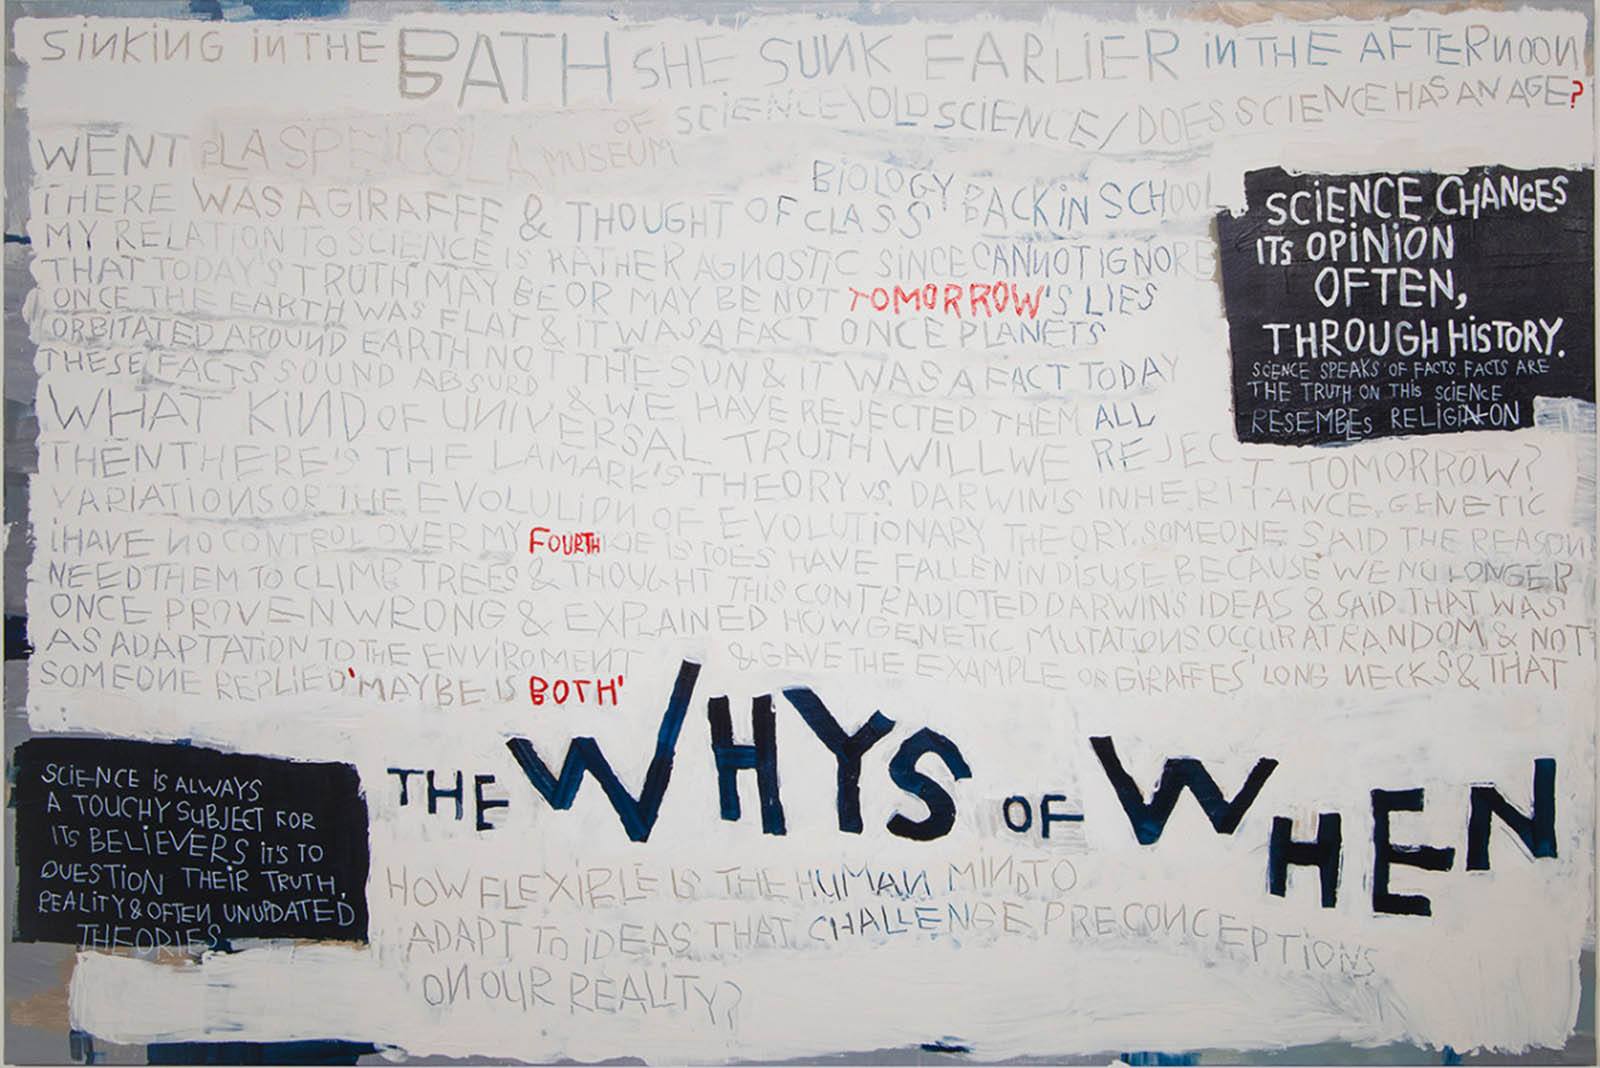 SINKING IN THE BATH SHE SUNK EARLIER IN THE AFTERNOON
SCIENCE\OLD SCIENCE/DOES SCIENCE HAS AN AGE?
WENT OF MUSEUM
THERE WAS A GIRAFFE & THOUGHT OF BIOLOGY CLASS BACK IN SCHOOL
MY RELATION TO SCIENCE IS RATHER AGNOSTIC SINCE CANNOT IGNORE
THAT TODAY'S TRUTH MAY BE OR MAY BE NOT TOMORROW'S LIES
ONCE THE EARTH WAS FLAT & IT WAS A FACT ONCE PLANETS
ORBITATED AROUND EARTH NOT THE SUN & IT WAS A FACT TODAY
THESE FACTS SOUND ABSURD & WE HAVE REJECTED THEM ALL
WHAT KIND OF UNIVERSAL TRUTH WILL WE REJECT TOMORROW?
THEN THERE'S THE LAMARK'S THEORY VS. DARWIN'S INHERITANCE, GENETIC
VARIATIONS OR THE EVOLULION OF EVOLUTIONARY THEORY. SOMEONE SAID THE REASON
I HAVE NO CONTROL OVER MY FOURTH TOES HAVE FALLEN IN DISUSE BECAUSE WE NO LONGER
NEED THEM TO CLIMB TREES & THOUGHT THIS CONTRADICTED DARWINS IDEAS & SAID THAT WAS
ONCE PROVEN WRONG & EXPLAINED HOW GENETIC MUTATIONS OCCUR AT RANDOM & NOT
AS ADAPTATION TO THE ENVIROMENT & GAVE THE EXAMPLE OR GIRAFFES' LONG NECKS & THAT
SOMEONE REPLIED 'MAYBE IS BOTH'
SCIENCE CHANGES
ITS OPINION
OFTEN,
THROUGH HISTORY.
SCIENCE SPEAKS OF FACTS. FACTS ARE
THE TRUTH ON THIS SCIENCE
RESEMBLES
THE WHYS OF WHEN
SCIENCE IS ALWAYS
A TOUCHY SUBJECT FOR
ITS BELIEVERS IT'S TO
QUESTION THEIR TRUTH,
REALITY & OFTEN UNUPDATED
THEORIES
HOW FLEXIBLE IS THE HUMAN MIND TO
ADAPT TO IDEAS THAT CHALLENGE PRECONCEPTIONS
ON OUR REALITY?